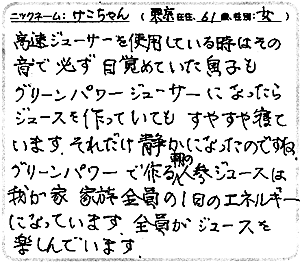 ニックネーム: けこちゃん ( 東京 在住、61 歳、性別: 女 )
高速ジューサーを使用している時はその
音で必ず目覚めていた息子も
グリーンパワージューサーになったら
ジュースを作っていても すやすや寝て
います。それだけ静かになったのですね
グリーンパワーで作る朝の人参ジュースは
我が家 家族全員の1日のエネルギー
になっています。全員がジュースを
楽しんでいます。